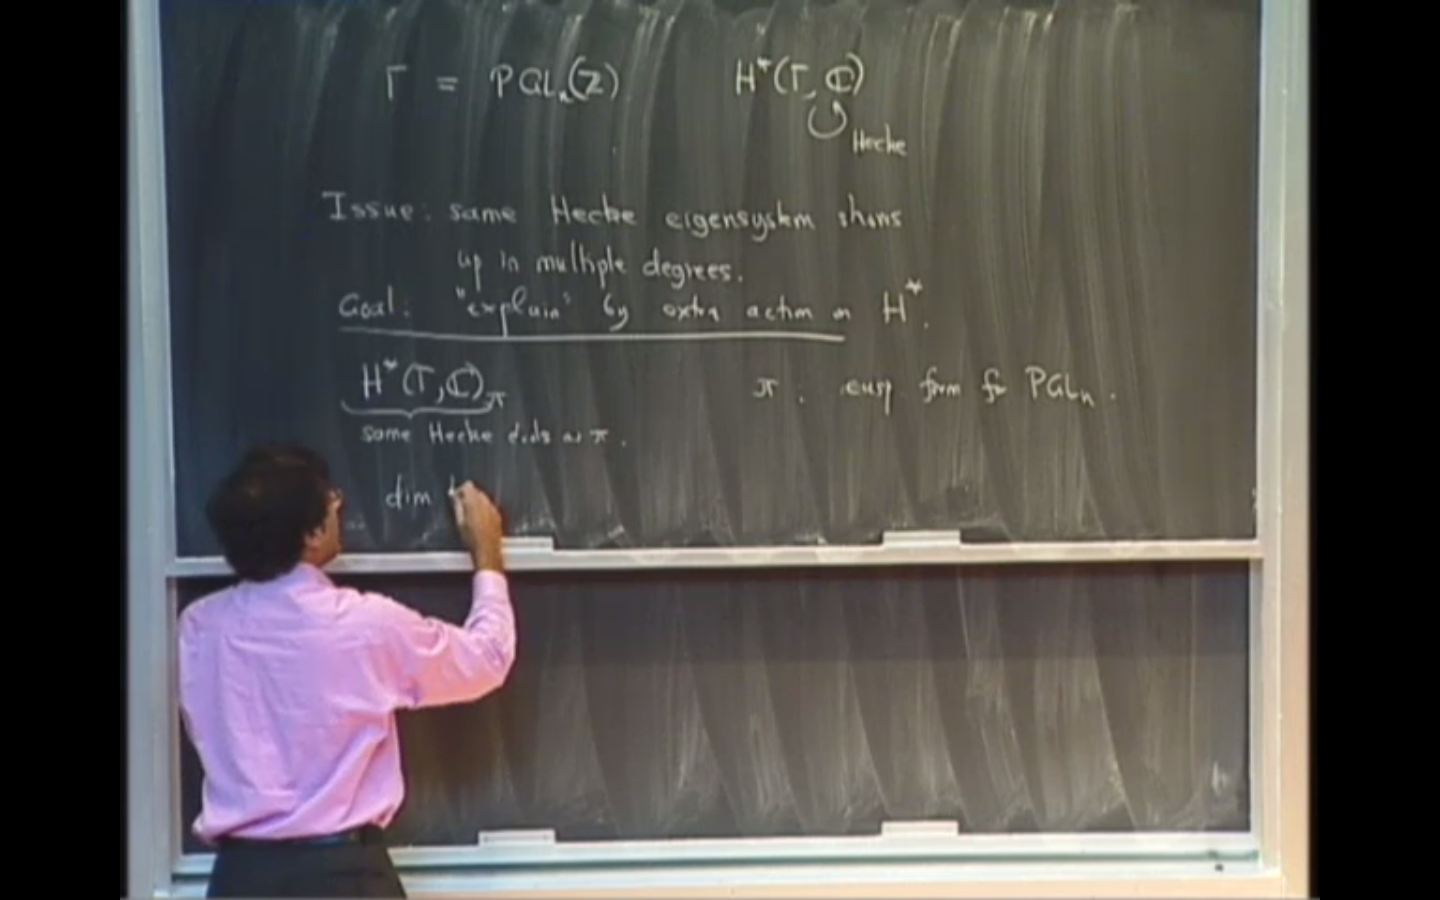 Γ = PGLₙ(ℤ) H*(Γ, ℂ)
Hecke
Issue: same Hecke eigensystem shows
up in multiple degrees.
Goal: "explain" by extra action on H*.
H*(Γ, ℂ)_π π : cusp form for PGLₙ.
same Hecke as π.
dim